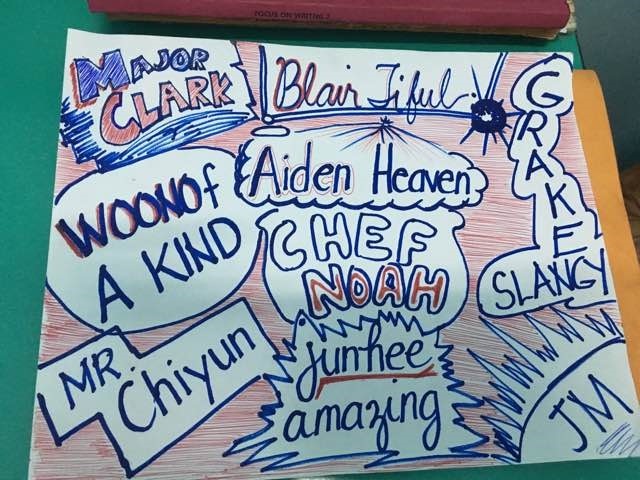 FOCUS ON WRITING 2
MAJOR
CLARK
Blair Tiful
GRAKE
SLANGY
Aiden Heaven
WOONOf
A KIND
CHEF
NOAH
MR.
Chiyun
junhee
amazing
JM